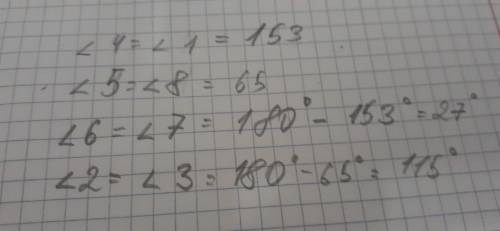 ∠4 = ∠1 = 153
∠5 = ∠8 = 65
∠6 = ∠7 = 180° - 153° = 27°
∠2 = ∠3 = 180° - 65° = 115°